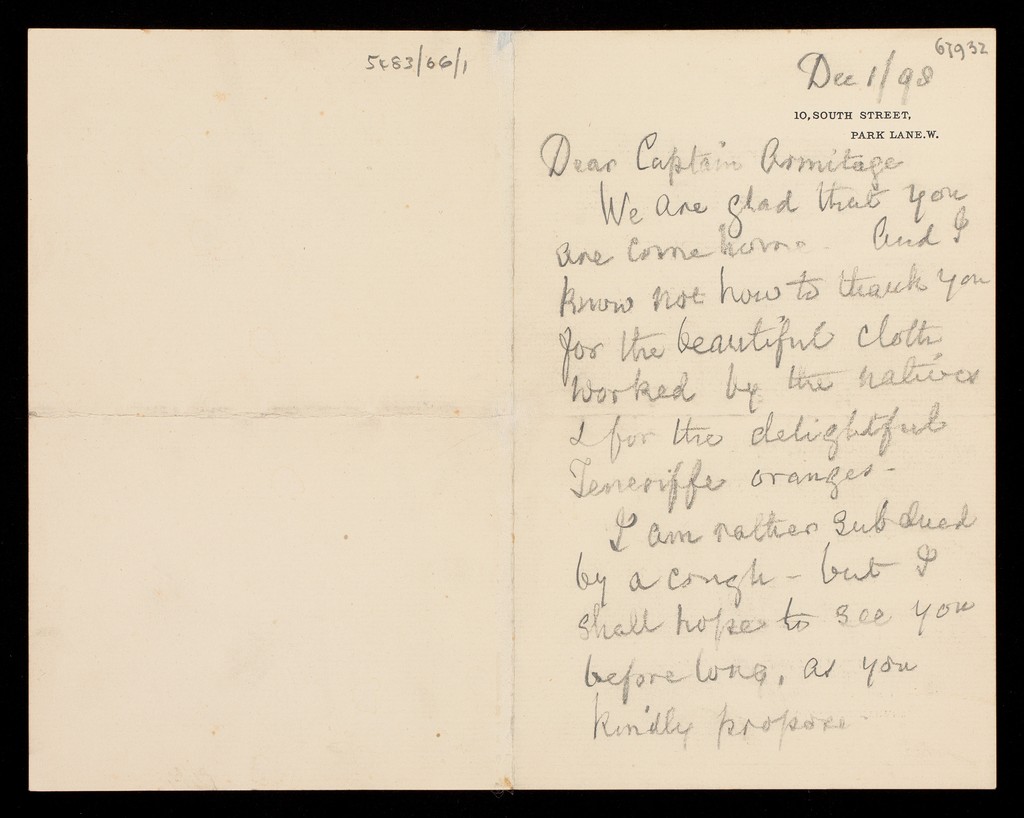 5483/66/1
67932
Dec 1/98
10, SOUTH STREET,
PARK LANE. W.
Dear Captain Armitage
We are glad that you
are come home. And I
know not how to thank you
for the beautiful cloth
worked by the natives
& for the delightful
Teneriffe oranges -
I am rather subdued
by a cough - but I
shall hope to see you
before long, as you
kindly propose